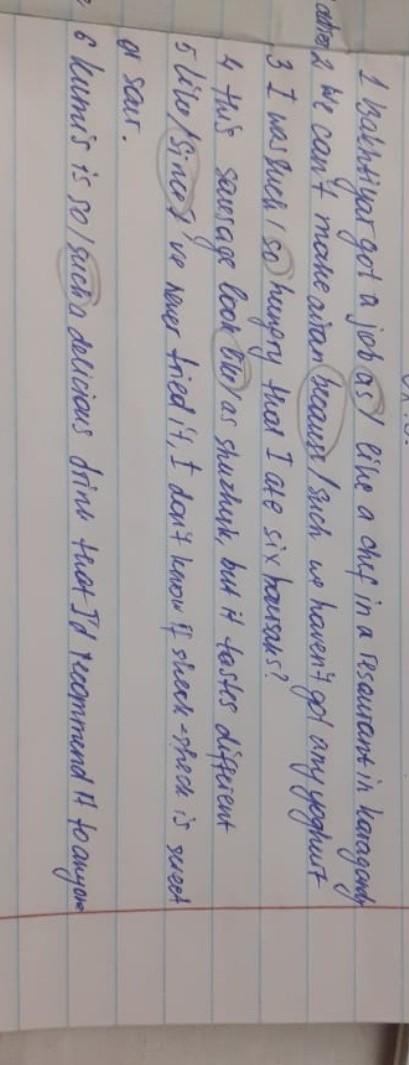 1 Bakhtiyar got a job as / like a chef in a resaurant in karagandy
2 We can't make airan because / such we haven't got any yoghurt
3 I was such / so hungry that I ate six baursaks?
4 this sausage look like / as shuzhyk, but it tastes different
5 like / since I've never tried it, I don't know if sheck-speck is sweet
or sour.
6 kumis is so / such a delicious drink that I'd recommend it to anyone